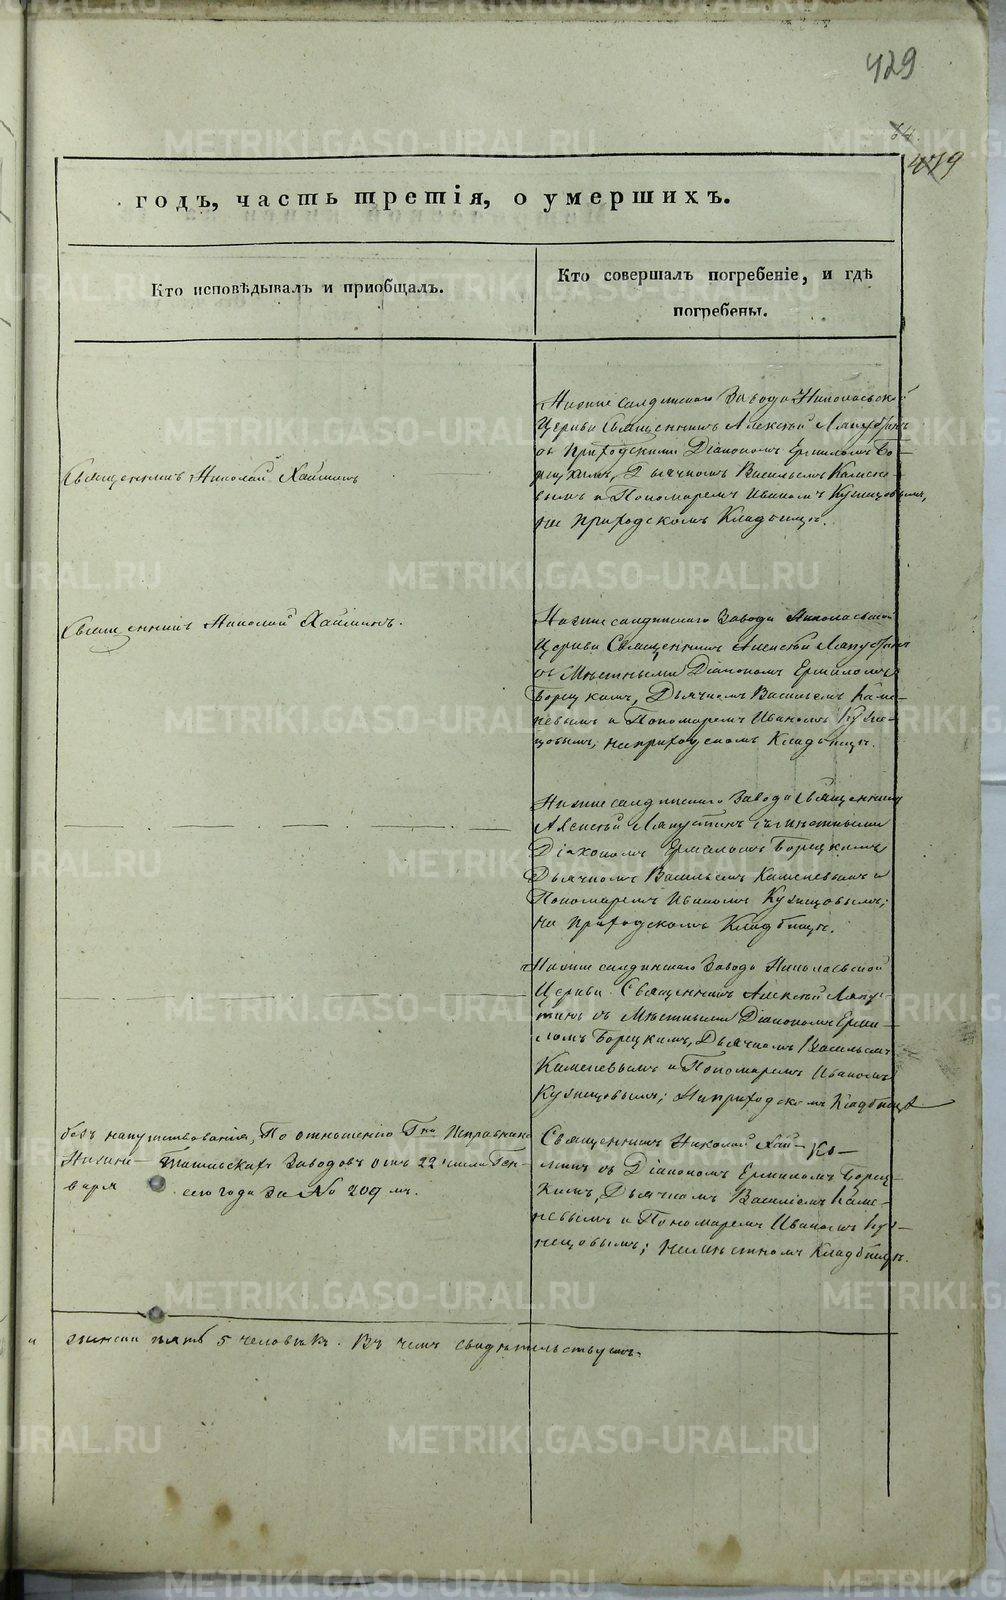 429
64.
479
годъ, часть третія, о умершихъ.
Кто исповѣдывалъ и приобщалъ.
Кто совершалъ погребеніе, и гдѣ
погребены.
Священникъ Николай Хайминъ
Нижне салдинскаго Завода Николаевской
Церкви Священникъ Алексѣй Лапустинъ
съ Приходскими Діакономъ Ермиломъ Бо-
рецкимъ, Дьячкомъ Васильемъ Каменe-
вымъ и Пономаремъ Иваномъ Кузнецовымъ,
на приходскомъ Кладбищѣ.
Священникъ Николай Хайминъ.
Нижне салдинскаго Завода Николаевской
Церкви Священникъ Алексѣй Лапустинъ
съ Мѣстными Діакономъ Ермиломъ
Борецкимъ, Дьячкомъ Васильемъ Каме-
невымъ и Пономаремъ Иваномъ Кузне-
цовымъ; на приходскомъ Кладбищѣ.
Нижне салдинскаго Завода Священникъ
Алексѣй Лапустинъ съ мѣстными
Діакономъ Ермиломъ Борецкимъ
Дьячкомъ Васильемъ Каменевымъ и
Пономаремъ Иваномъ Кузнецовымъ;
на приходскомъ Кладбищѣ.
Нижне салдинскаго Завода Николаевской
Церкви Священникъ Алексѣй Лапус-
тинъ съ Мѣстными Діакономъ Ерми-
ломъ Борецкимъ, Дьячкомъ Васильемъ
Каменевымъ и Пономаремъ Иваномъ
Кузнецовымъ; на приходскомъ Кладбищѣ
безъ напутствованія, По отношенію Гна Исправника
Нижне-Тагильскихъ Заводовъ отъ 22 числа Ген-
варя сего года за № 209 мъ.
Священникъ Николай Хай-
минъ съ Діакономъ Ермиломъ Борец-
кимъ, Дьячкомъ Василіемъ Каме-
невымъ и Пономаремъ Иваномъ Куз-
нецовымъ; на мѣстномъ Кладбищѣ.
пять 5 человѣкъ. Въ чемъ свидѣтельствуемъ.
METRIKI.GASO-URAL.RU